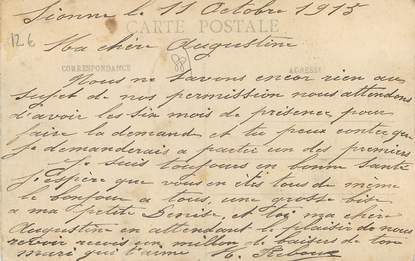 Sionne le 11 Octobre 1915
CARTE POSTALE
12€
Ma chère Augustine
CORRESPONDANCE
ADRESSE
Nous ne savons encor rien au
sujet de nos permission nous attendons
d'avoir les six mois de présence pour
faire la demand et tu peux conter que
je demanderais a partir un des premiers
Je suis toujours en bonne santé
j'espère que vous en êtes tous de même
le bonjour a tous, une grosse bise
a ma petite Denise, et toi ma chère
Augustine en attendant le plaisir de nous
revoir reçois un million de baisers de ton
mari qui t'aime